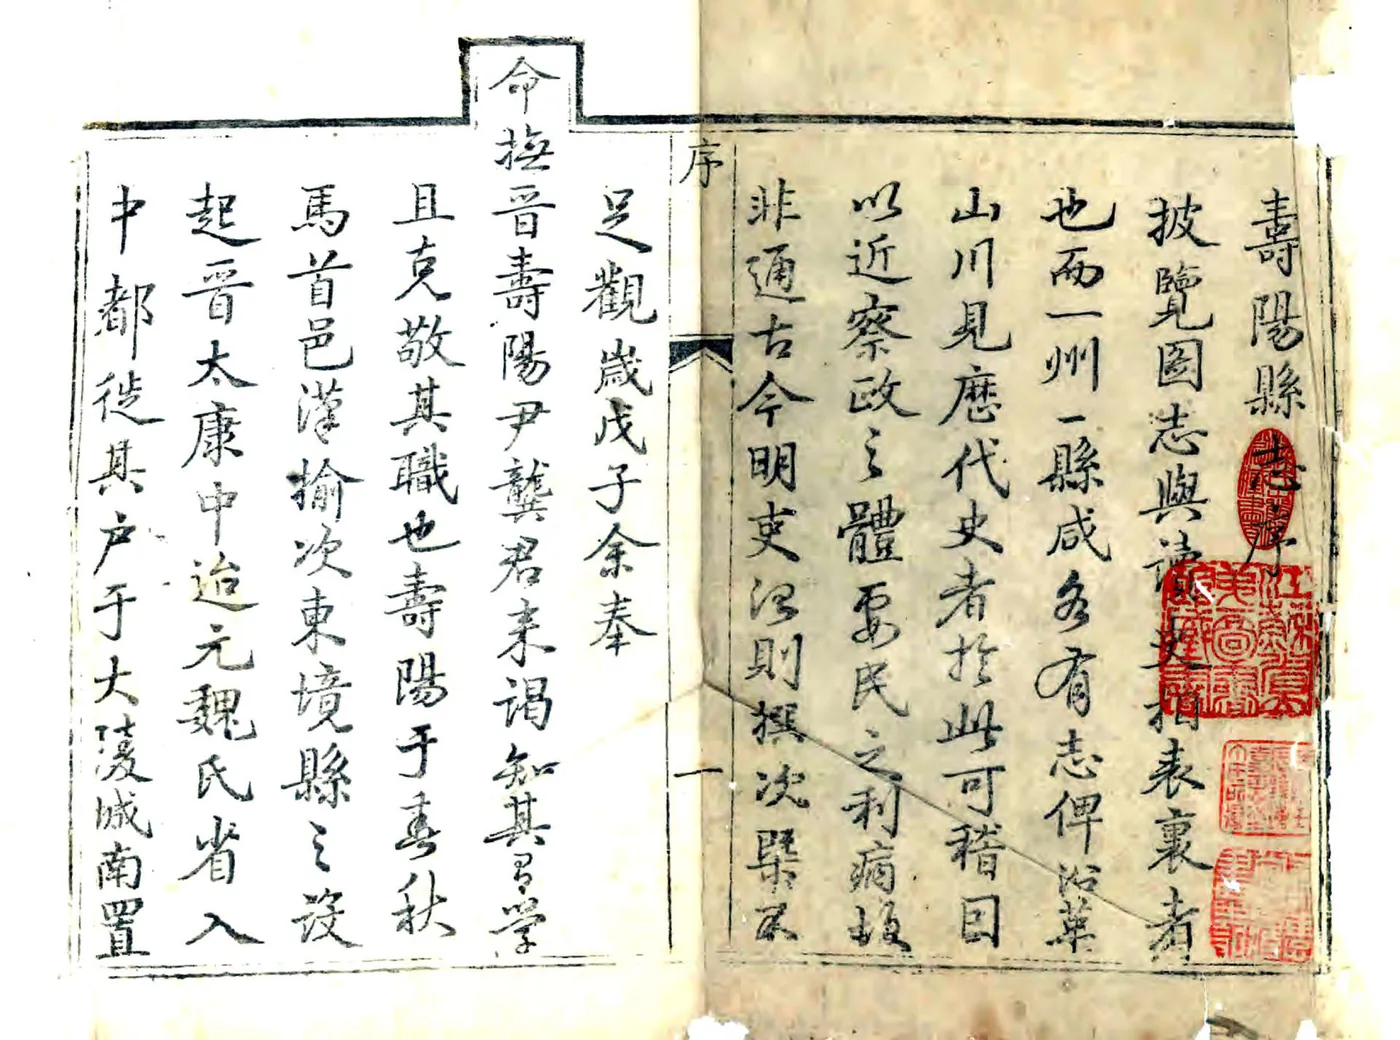 壽陽縣志序
披覽图志與讀史相表裏者
也而一州一縣咸各有志俾沿革
山川見歷代史者於此可稽因
以近察政之體要民之利病故
非通古今明吏治則撰次槩不
序
一
足觀歲戊子余奉
命撫晉壽陽尹龔君来谒知其學
且克敬其職也壽陽于春秋
馬首邑漢榆次東境縣之設
起晋太康中迨元魏氏省入
中都徙其户于大陵城南置